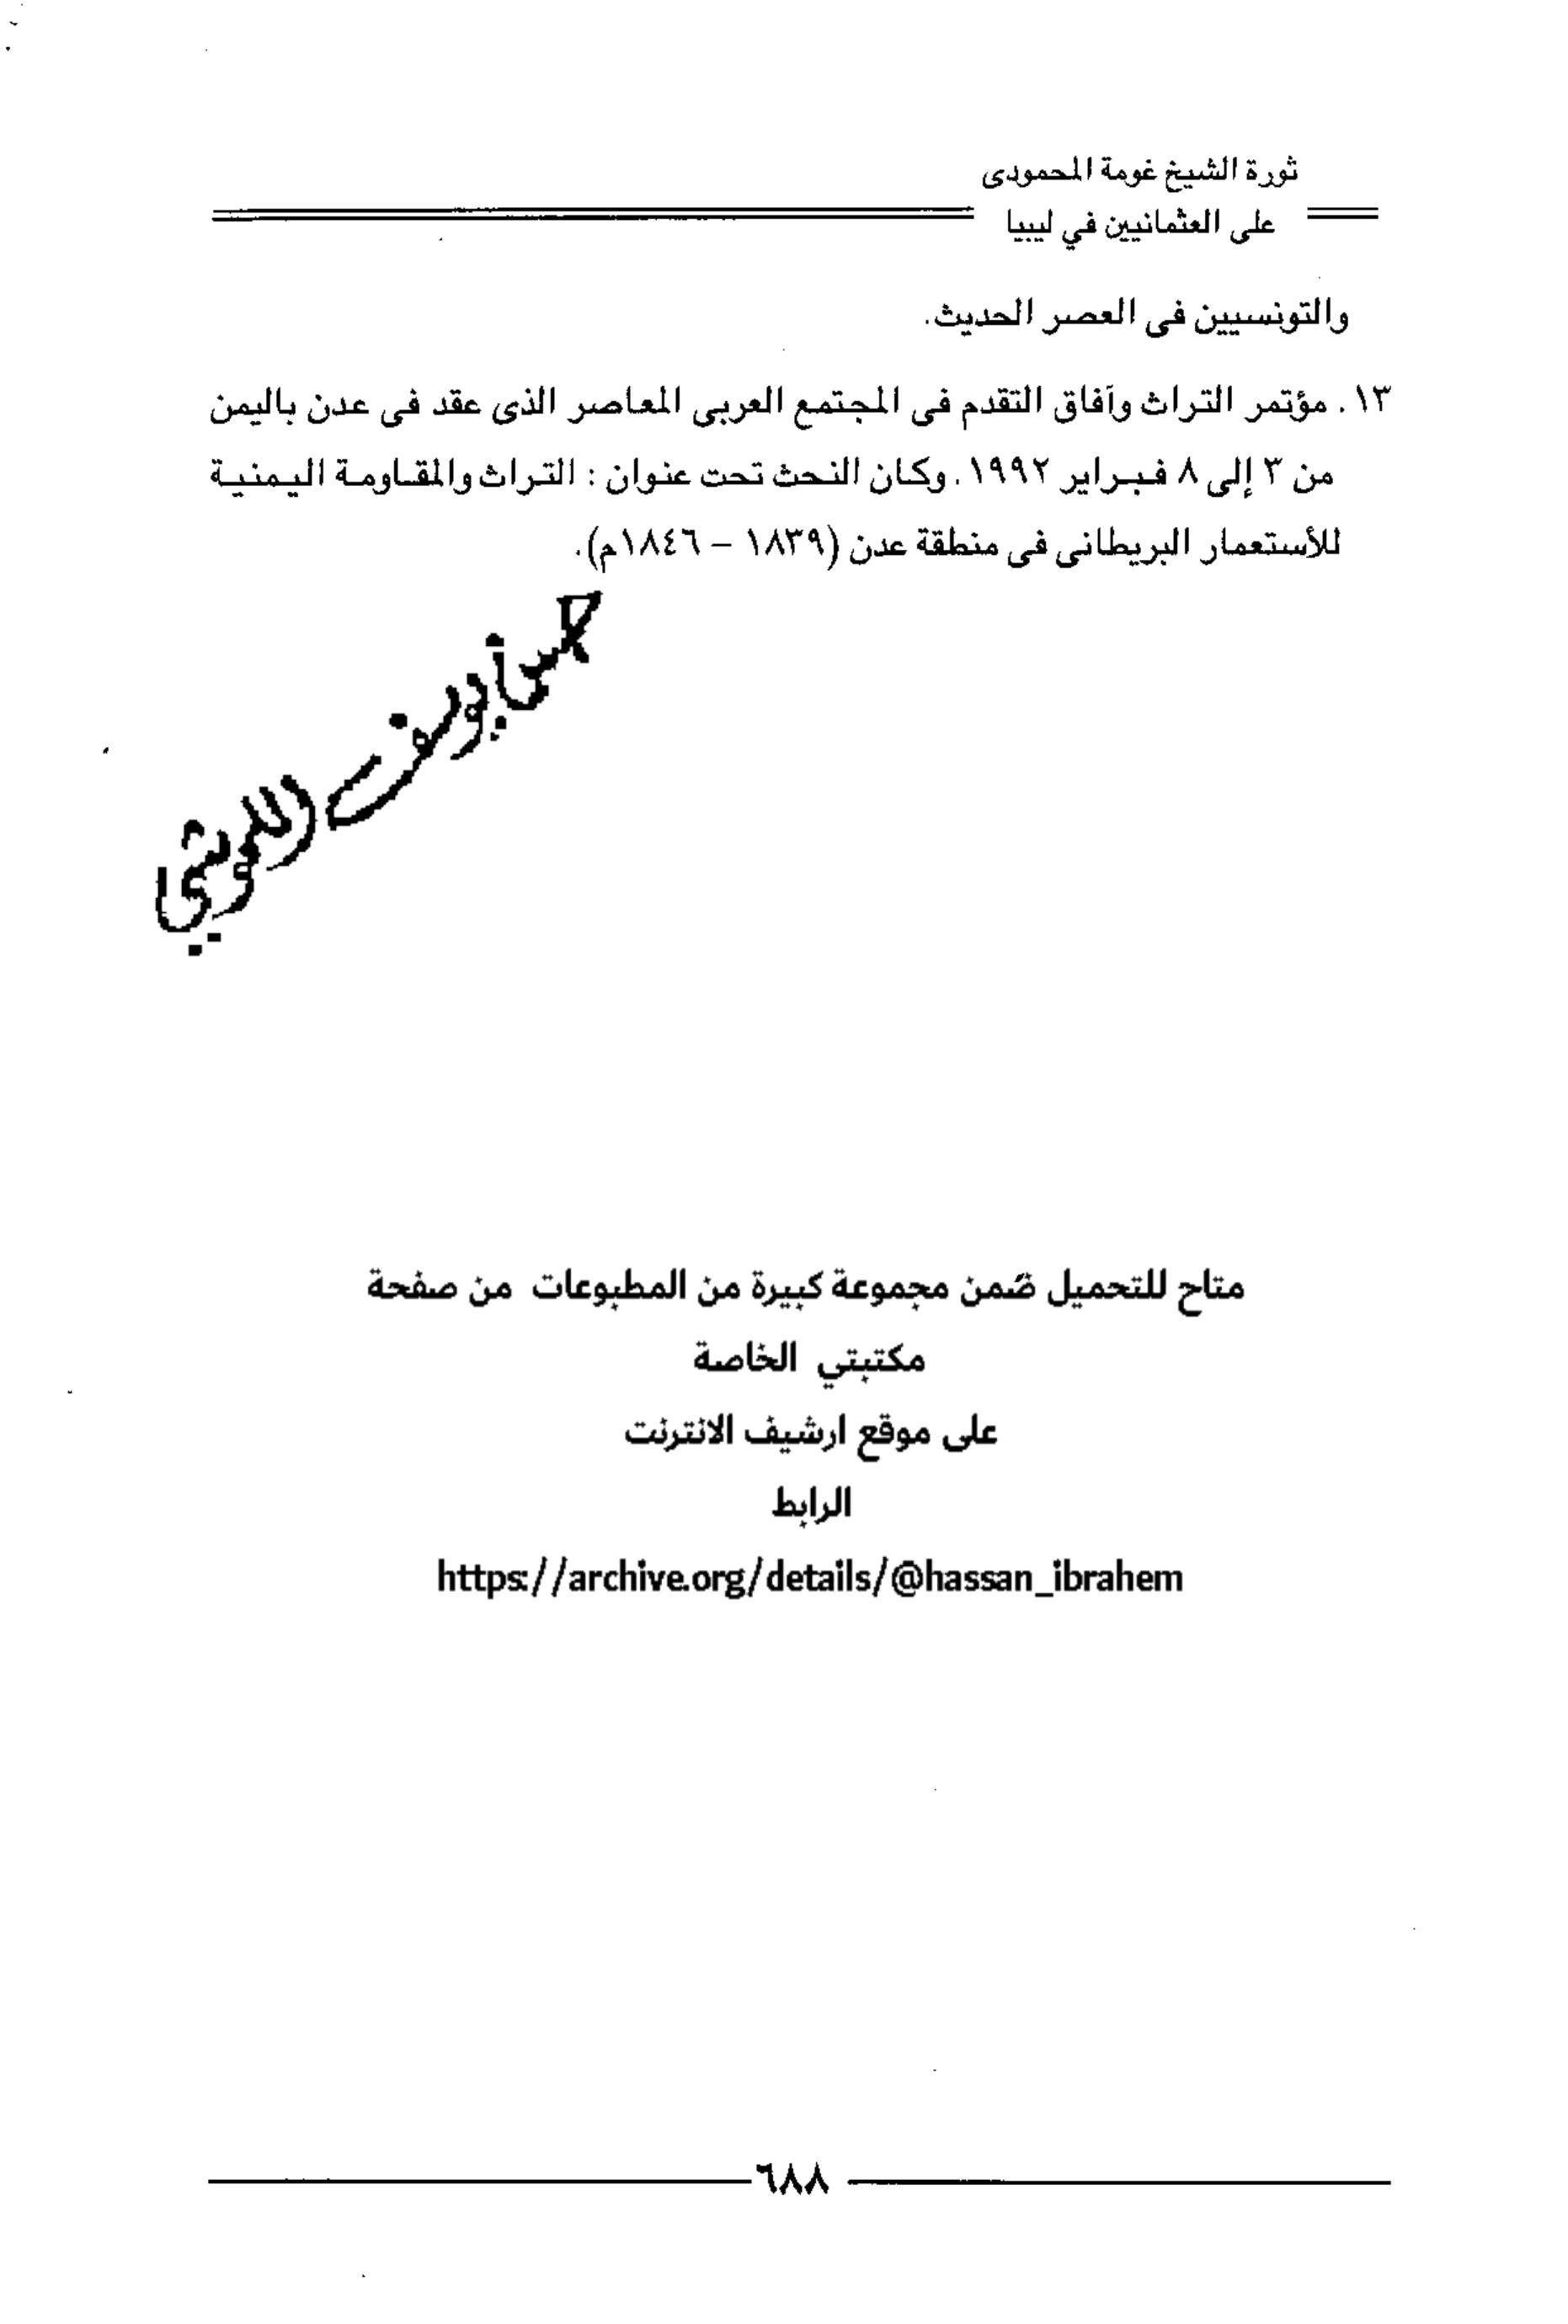 ثورة الشيخ غومة المحمودى
على العثمانيين في ليبيا
والتونسيين فى العصر الحديث.
١٣ . مؤتمر التراث وآفاق التقدم فى المجتمع العربى المعاصر الذى عقد فى عدن باليمن
من ٣ إلى ٨ فبراير ١٩٩٢. وكان النحث تحت عنوان : التراث والمقاومة اليمنية
للأستعمار البريطانى فى منطقة عدن (١٨٣٩ – ١٨٤٦م).
متاح للتحميل ضمن مجموعة كبيرة من المطبوعات من صفحة
مكتبتي الخاصة
على موقع ارشيف الانترنت
الرابط
https://archive.org/details/@hassan_ibrahem
٦٨٨